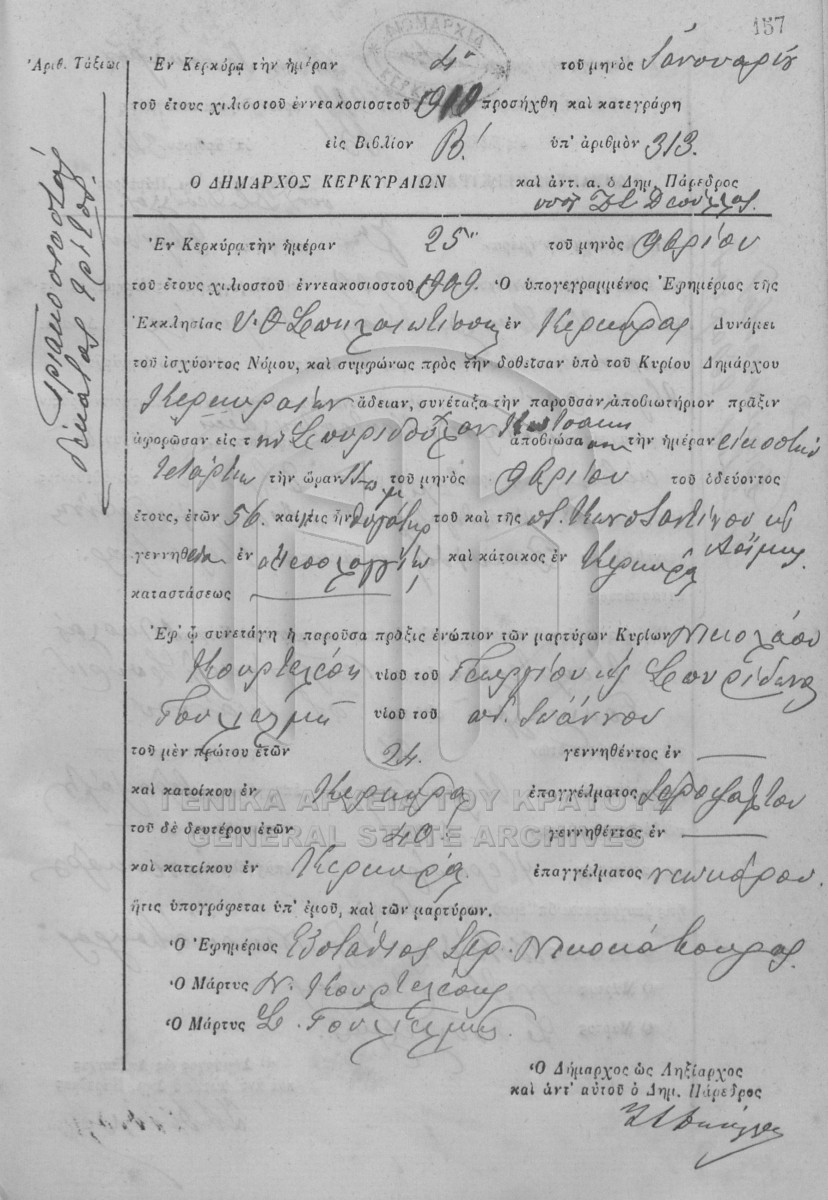 157
Ἀριθ. Τάξεως
τριακοσιοστός δέκατος τρίτος.
Ἐν Κερκύρᾳ τὴν ἡμέραν 4 τοῦ μηνὸς Ἰανουαρίου
τοῦ ἔτους χιλιοστοῦ ἐννεακοσιοστοῦ 1910 προσήχθη καὶ κατεγράφη
εἰς Βιβλίον Β! ὑπ' ἀριθμὸν 313.
Ο ΔΗΜΑΡΧΟΣ ΚΕΡΚΥΡΑΙΩΝ καὶ ἀντ. α. ὁ Δημ. Πάρεδρος
Ἐν Κερκύρᾳ τὴν ἡμέραν 25 τοῦ μηνὸς 9βρίου
τοῦ ἔτους χιλιοστοῦ ἐννεακοσιοστοῦ 1909. Ὁ ὑπογεγραμμένος Ἐφημέριος τῆς
Ἐκκλησίας Υ. Θ. Σπηλαιωτίσσης ἐν Κερκύρᾳ Δυνάμει
τοῦ ἰσχύοντος Νόμου, καὶ συμφώνως πρὸς τὴν δοθεῖσαν ὑπὸ τοῦ Κυρίου Δημάρχου
Κερκυραίων ἄδειαν, συνέταξα τὴν παροῦσαν ἀποβιωτήριον πρᾶξιν
ἀφορῶσαν εἰς τὴν ἀποβιώσασαν τὴν ἡμέραν εἰκοστὴν
τετάρτην τὴν ὥραν τοῦ μηνὸς 9βρίου τοῦ ὁδεύοντος
ἔτους, ἐτῶν 56. καὶ ἥτις ἦν θυγάτηρ τοῦ καὶ τῆς ποτ. Κωνσταντίνου
γεννηθεῖσα ἐν καὶ κάτοικος ἐν Κερκύρᾳ
καταστάσεως
Ἐφ' ᾧ συνετάγη ἡ παροῦσα πρᾶξις ἐνώπιον τῶν μαρτύρων Κυρίων Νικολάου
Κουρτελέση υἱοῦ τοῦ Γεωργίου κὲ Σπυρίδωνα
υἱοῦ τοῦ ποτ. Ἰωάννου
τοῦ μὲν πρώτου ἐτῶν 24. γεννηθέντος ἐν
καὶ κατοίκου ἐν Κερκύρᾳ ἐπαγγέλματος Ἱεροψάλτου
τοῦ δὲ δευτέρου ἐτῶν 40. γεννηθέντος ἐν
καὶ κατοίκου ἐν Κερκύρᾳ. ἐπαγγέλματος νεωκόρου.
ἥτις ὑπογράφεται ὑπ' ἐμοῦ, καὶ τῶν μαρτύρων.
Ὁ Ἐφημέριος Εὐστάθιος Ἱερ.
Ὁ Μάρτυς Ν. Κουρτελέσης
Ὁ Μάρτυς Σ.
Ὁ Δήμαρχος ὡς Ληξίαρχος
καὶ ἀντ' αὐτοῦ ὁ Δημ. Πάρεδρος
ΓΕΝΙΚΑ ΑΡΧΕΙΑ ΤΟΥ ΚΡΑΤΟΥΣ
GENERAL STATE ARCHIVES